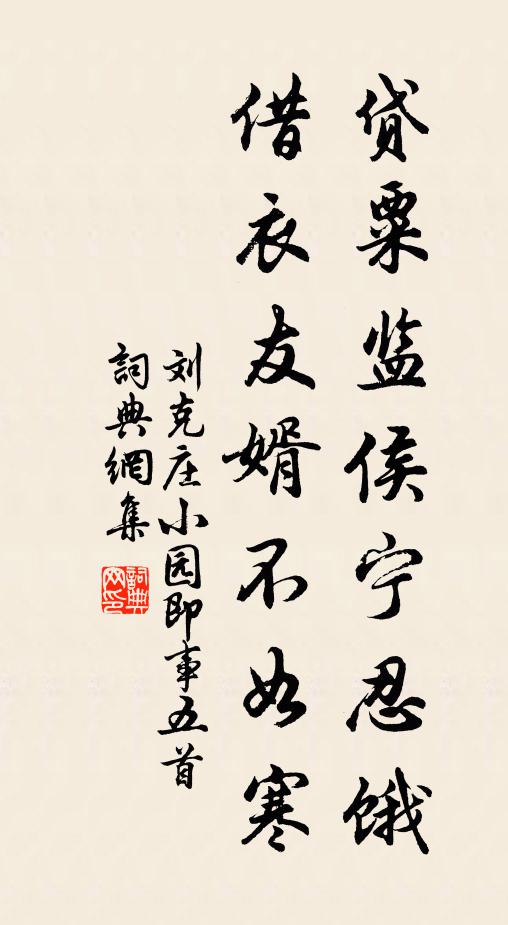 贷粟监侯宁忍饿
借衣友婿不如寒
刘克庄小园即事五首
詞典網集
詞典
网印